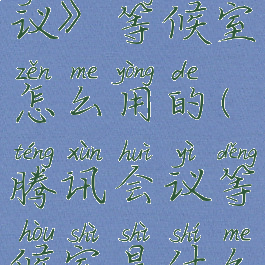 议》 等候室
zěn me yòng de
怎么用的(
téng xùn huì yì děng
腾讯会议等
hòu shì shì shí me
候室是什么